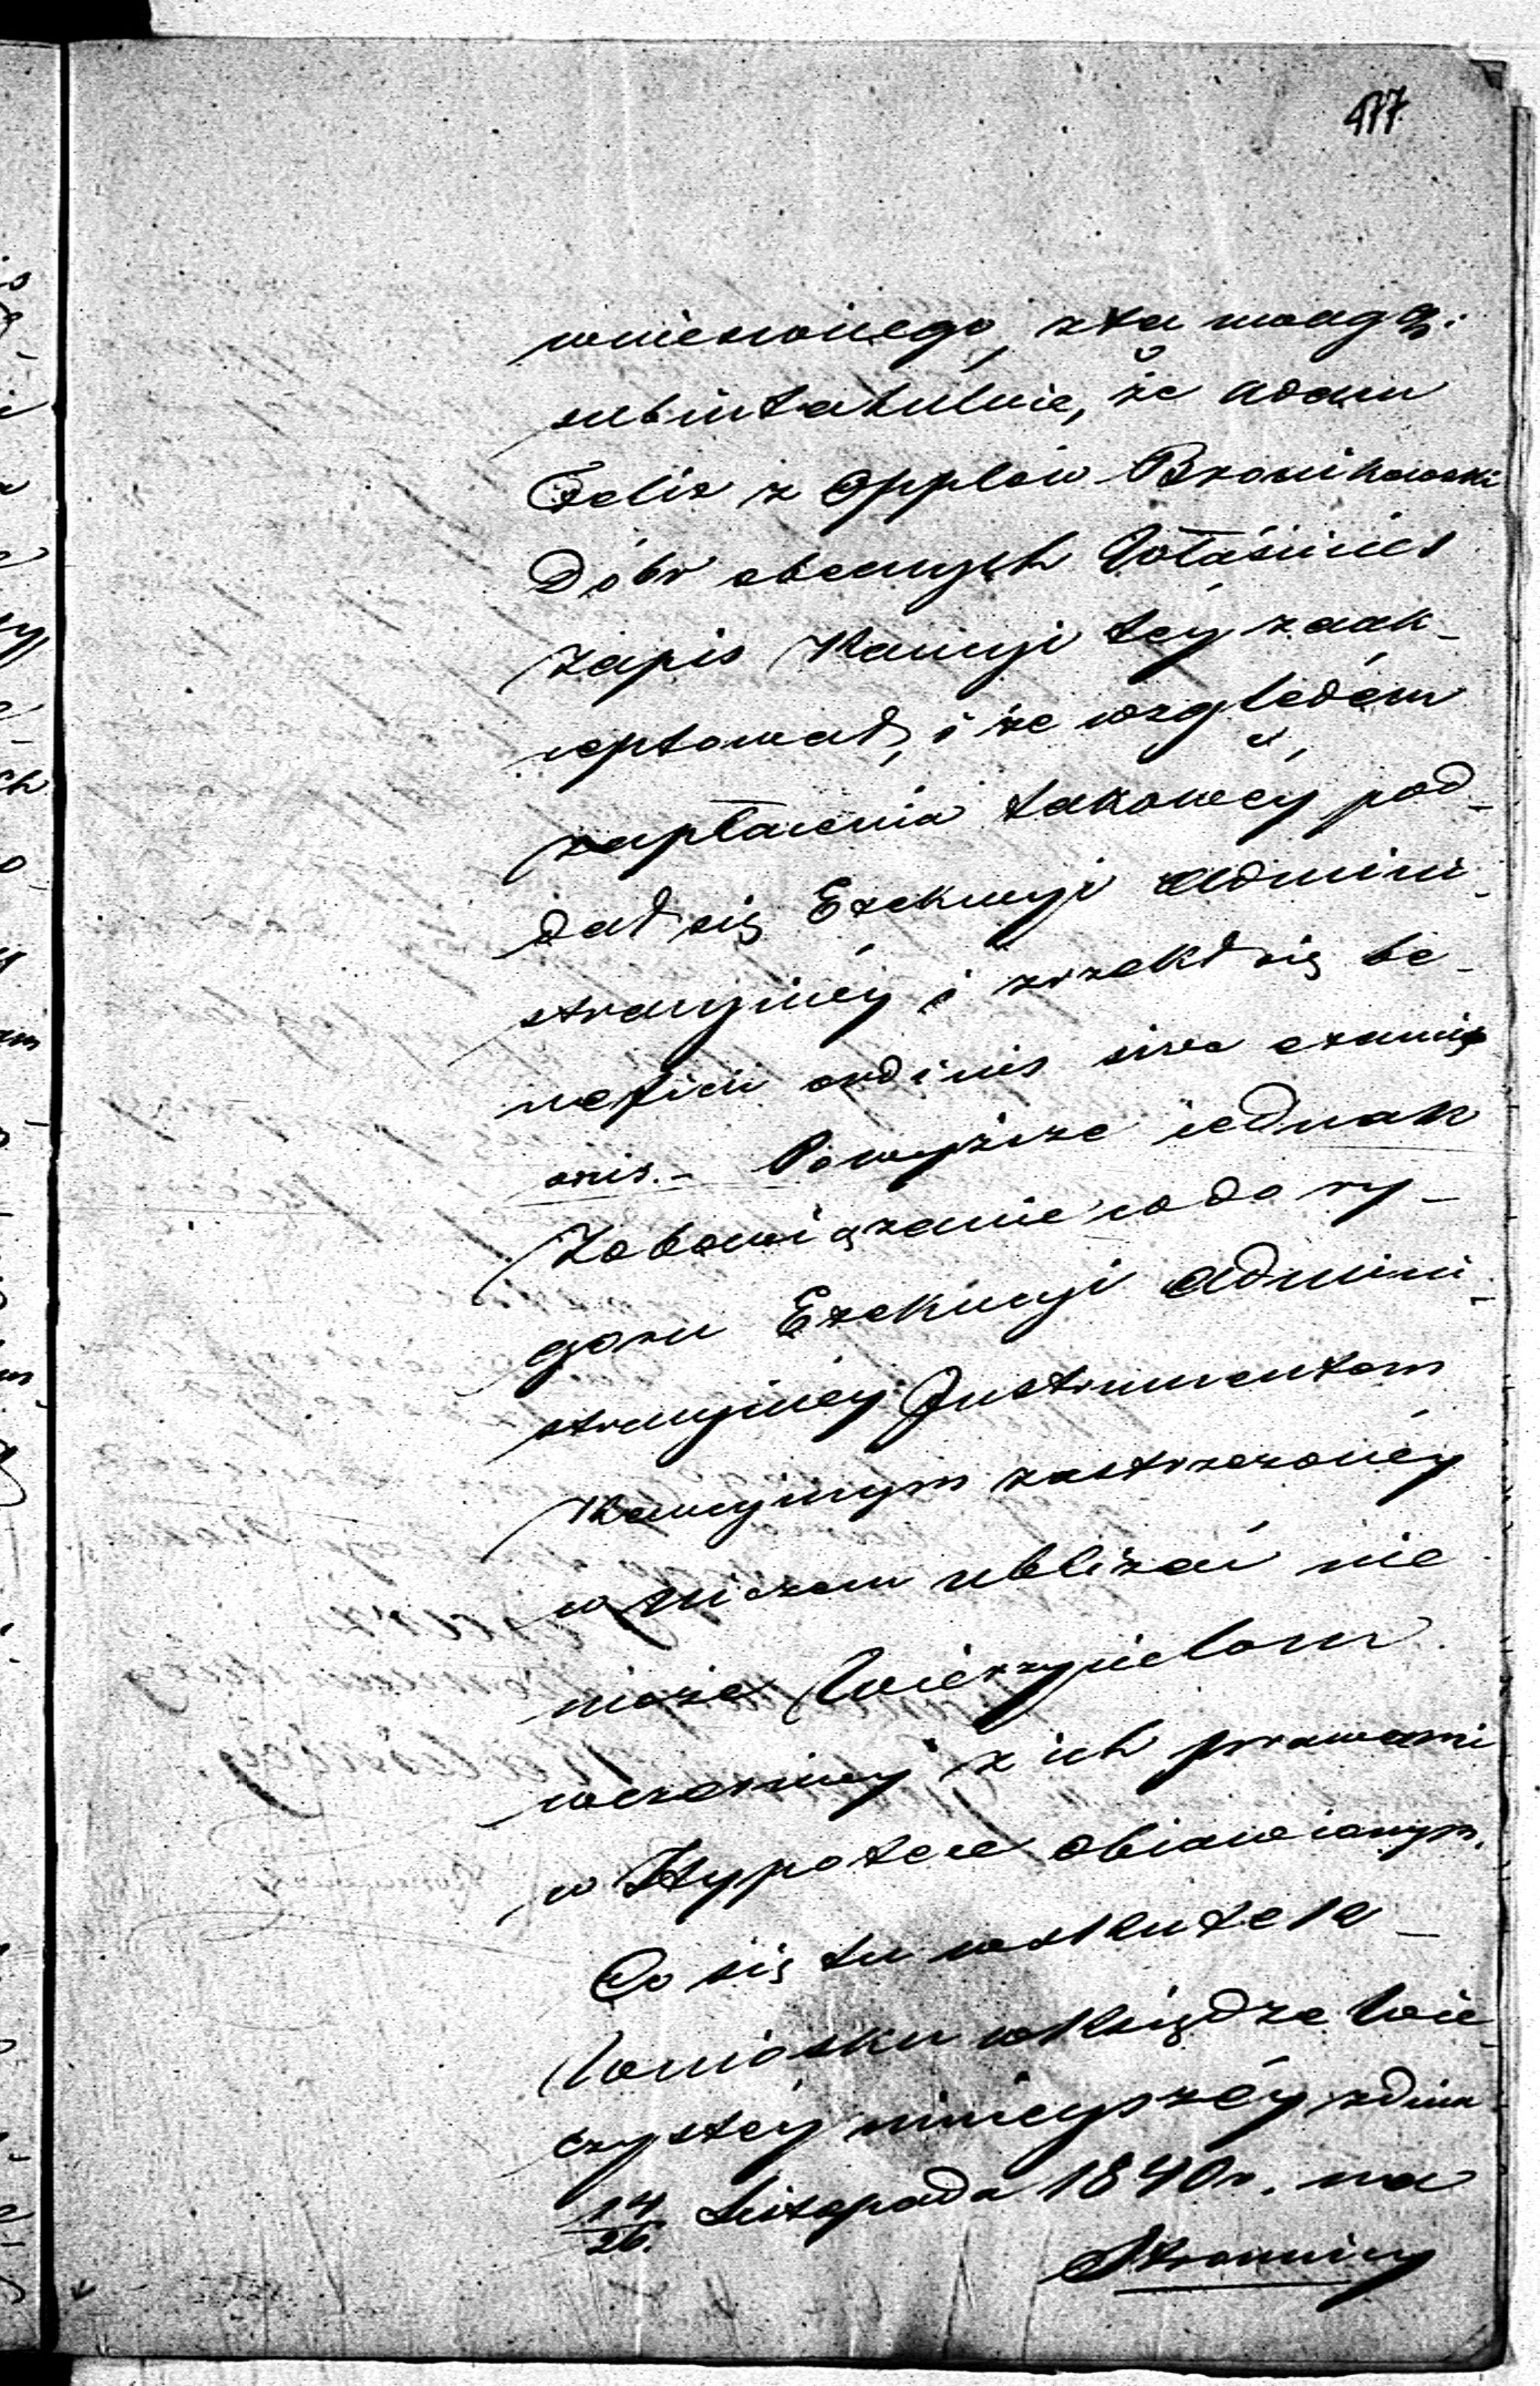 477
wniesionego, z tą uwagą:
subintabuluie, że Adam
Felix z Opplów Bronikowski
Dóbr obecnych Właściciel
Zapis Kaucyi tey zaak-
ceptował, i że względem
zapłacenia takowéy pod-
dał się Exekucyi Admini-
stracyinéy i zrzekł się be-
neficii ordinis sive excussi-
onis. – Powyższe iednak
Zobowiązanie co do ry-
goru Exekucyi Admini-
stracyinéy Instrumentem
Kaucyinym zastrzeżonéy
w niczem ubliżać nie
może Wierzycielom
wcześniey z ich prawami
w Hypotece obiawionym.
Co się tu w skutek
Wniosku w Księdze Wie-
czystéy ninieyszéy z dnia
14/26. Listopada 1840 r. na
Stronnicy